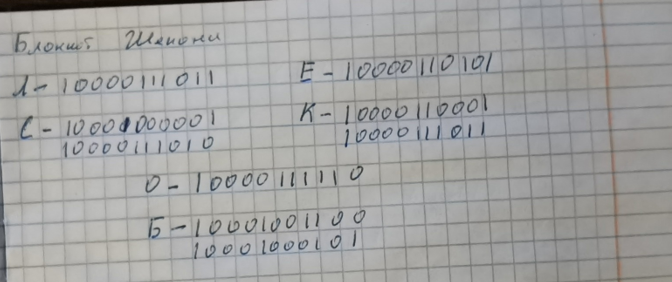 Блокнот Шеннона
Л - 10000111011
Е - 10000110101
С - 10001000001
10000111010
К - 10000110001
10000111011
О - 10000111110
Б - 10001001100
10001000101